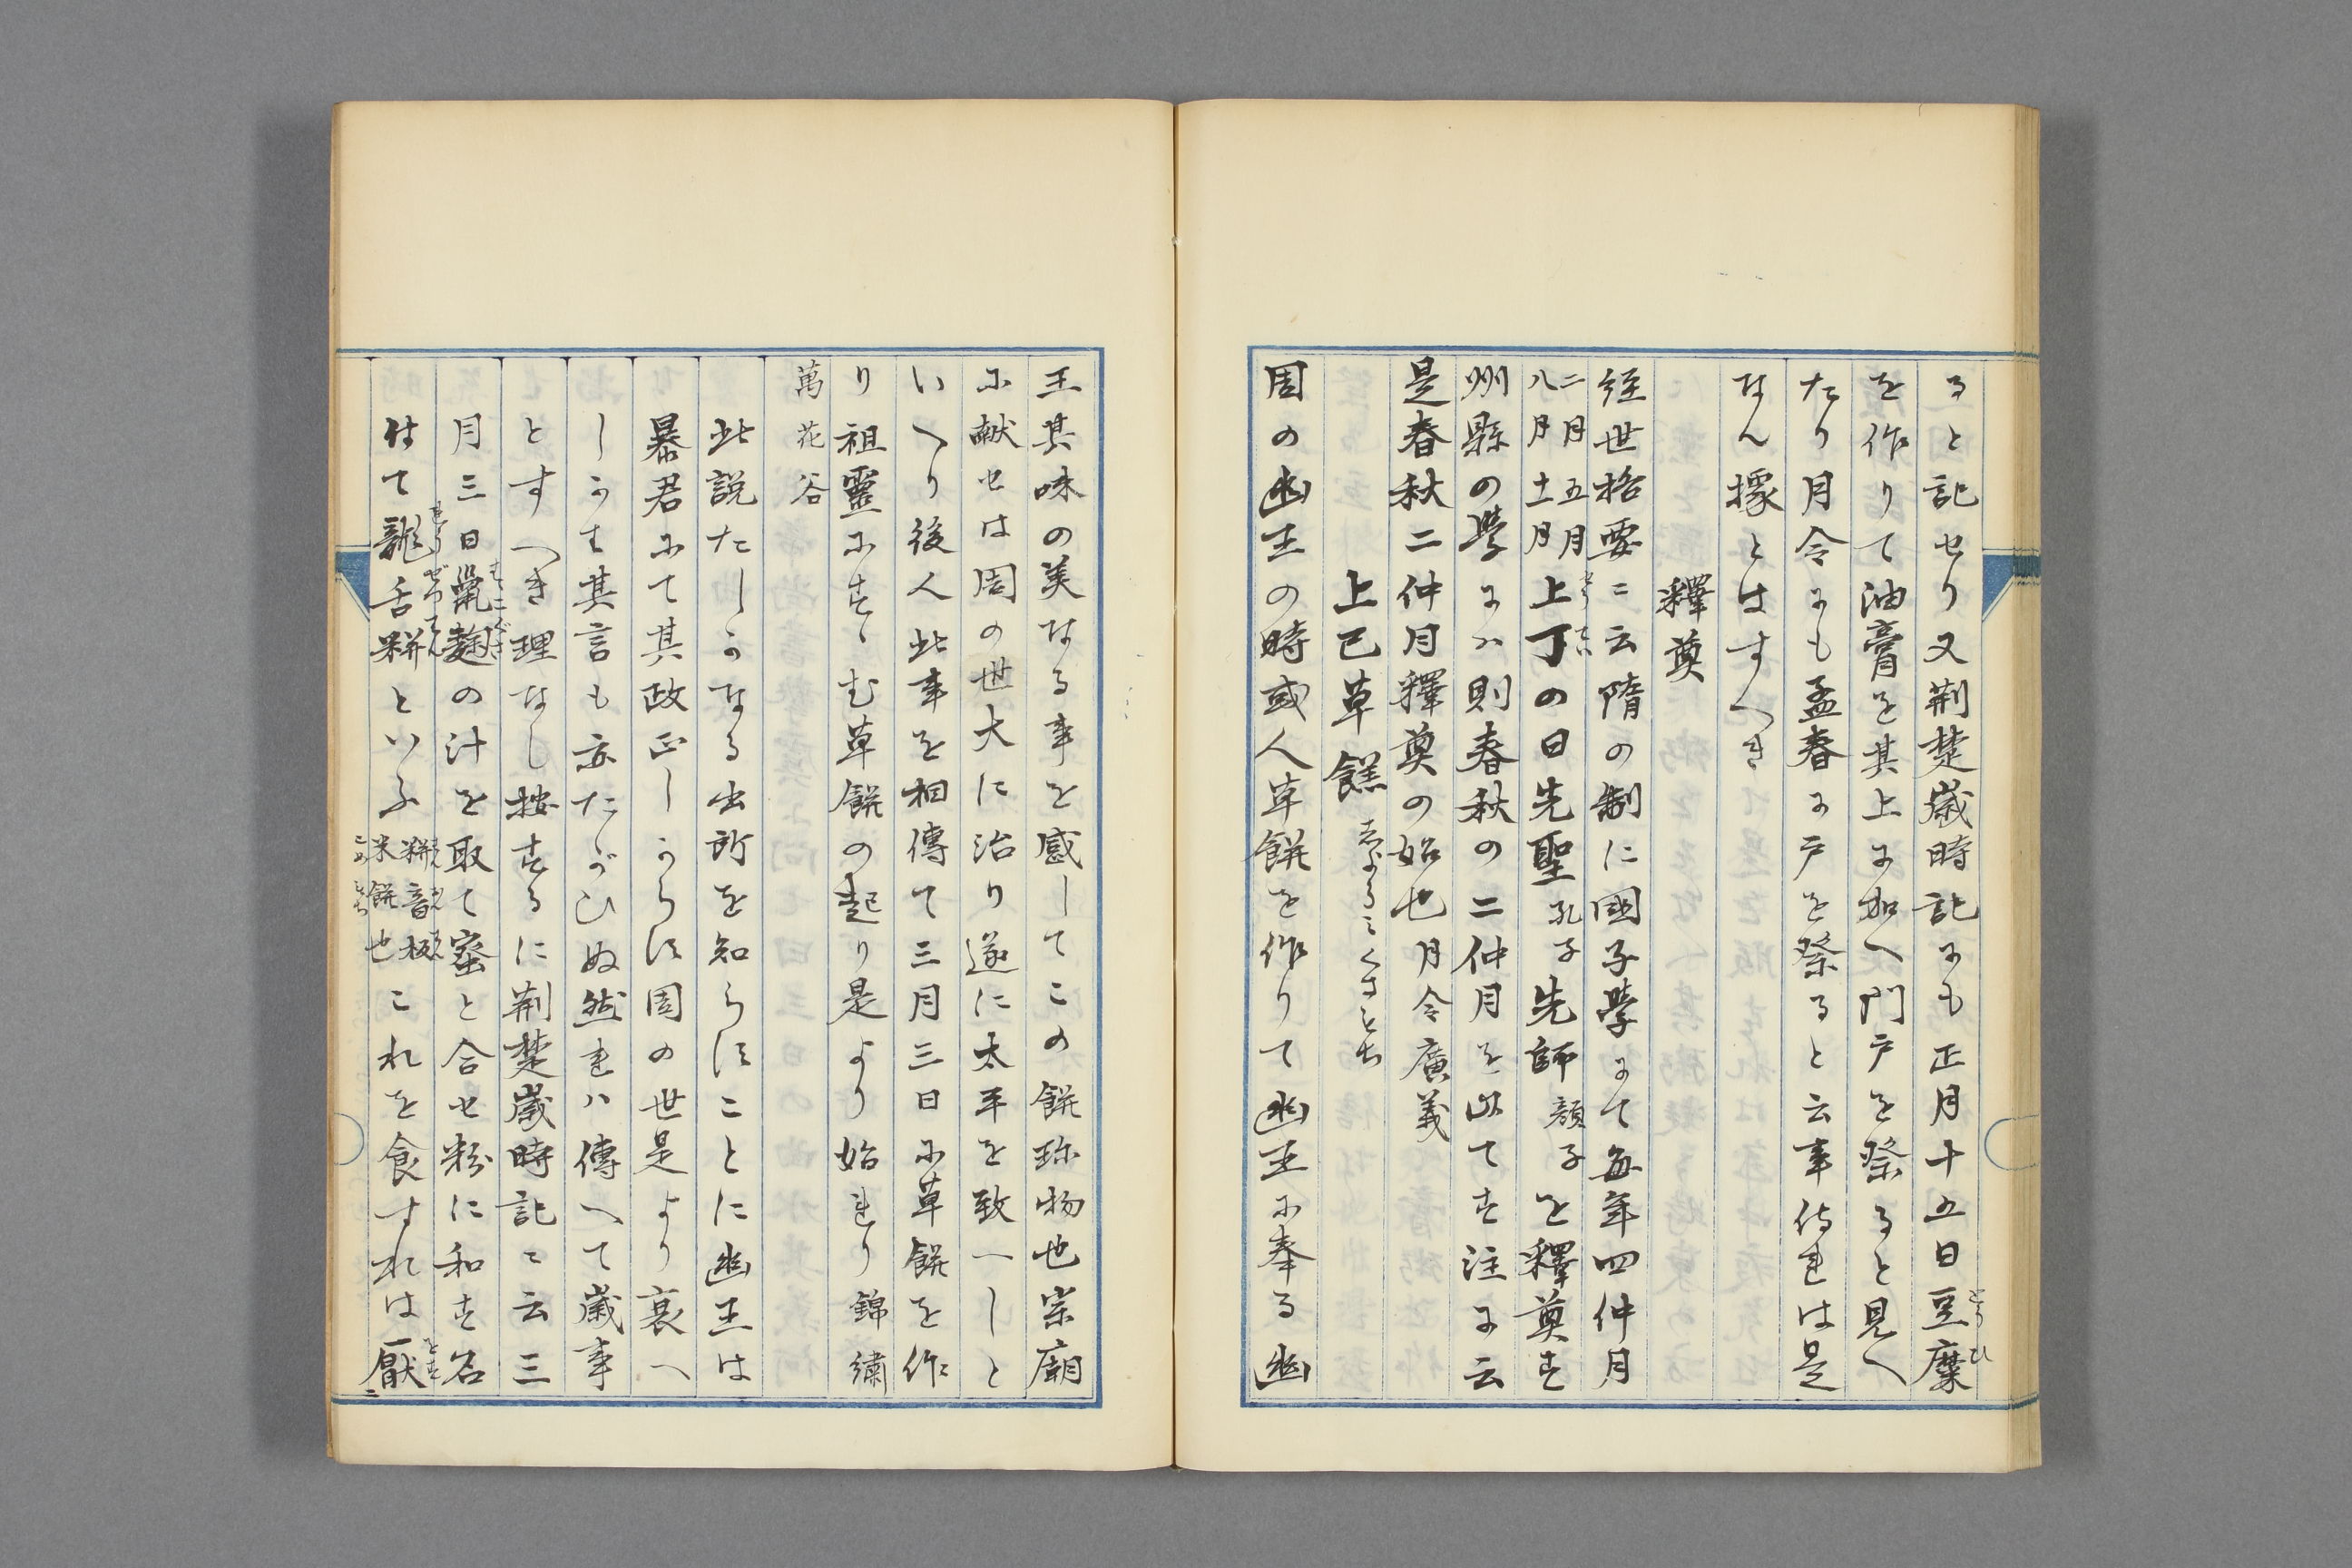 ると記せり又荊楚歳時記にも正月十五日豆糜
を作りて油膏を其上に加へ門戸を祭ると見へ
たり月令にも孟春に戸を祭ると云事侍れは是
なん據とはすへき
釋奠
経世格要ニ云隋の制に國子學にて毎年四仲月
二月五月八月十一月上丁の日先聖孔子先師顔子を釋奠す
州縣の學にハ則春秋の二仲月を以てす注に云
是春秋二仲月釋奠の始也月令廣義
上巳草餻
周の幽王の時或人草餅を作りて幽王に奉る幽
王其味の美なる事を感してこの餅珎物也宗廟
に献せは周の世大に治り遂に太平を致一しと
いへり後人此事を相傳て三月三日に草餅を作
り祖靈にすゝむ草餅の起り是より始れり錦繍
萬花谷
此説たしかなる出所を知らすことに幽王は
暴君にて其政正しからす周の世是より衰へ
しかも其言も亦たがひぬ然れハ傳へて歳事
とすへき理なし按するに荊楚歳時記ニ云三
月三日鼠麹の汁を取て蜜と合せ粉に和す名
付て龍舌䉽といふ䉽音板米餅也これを食すれは厭